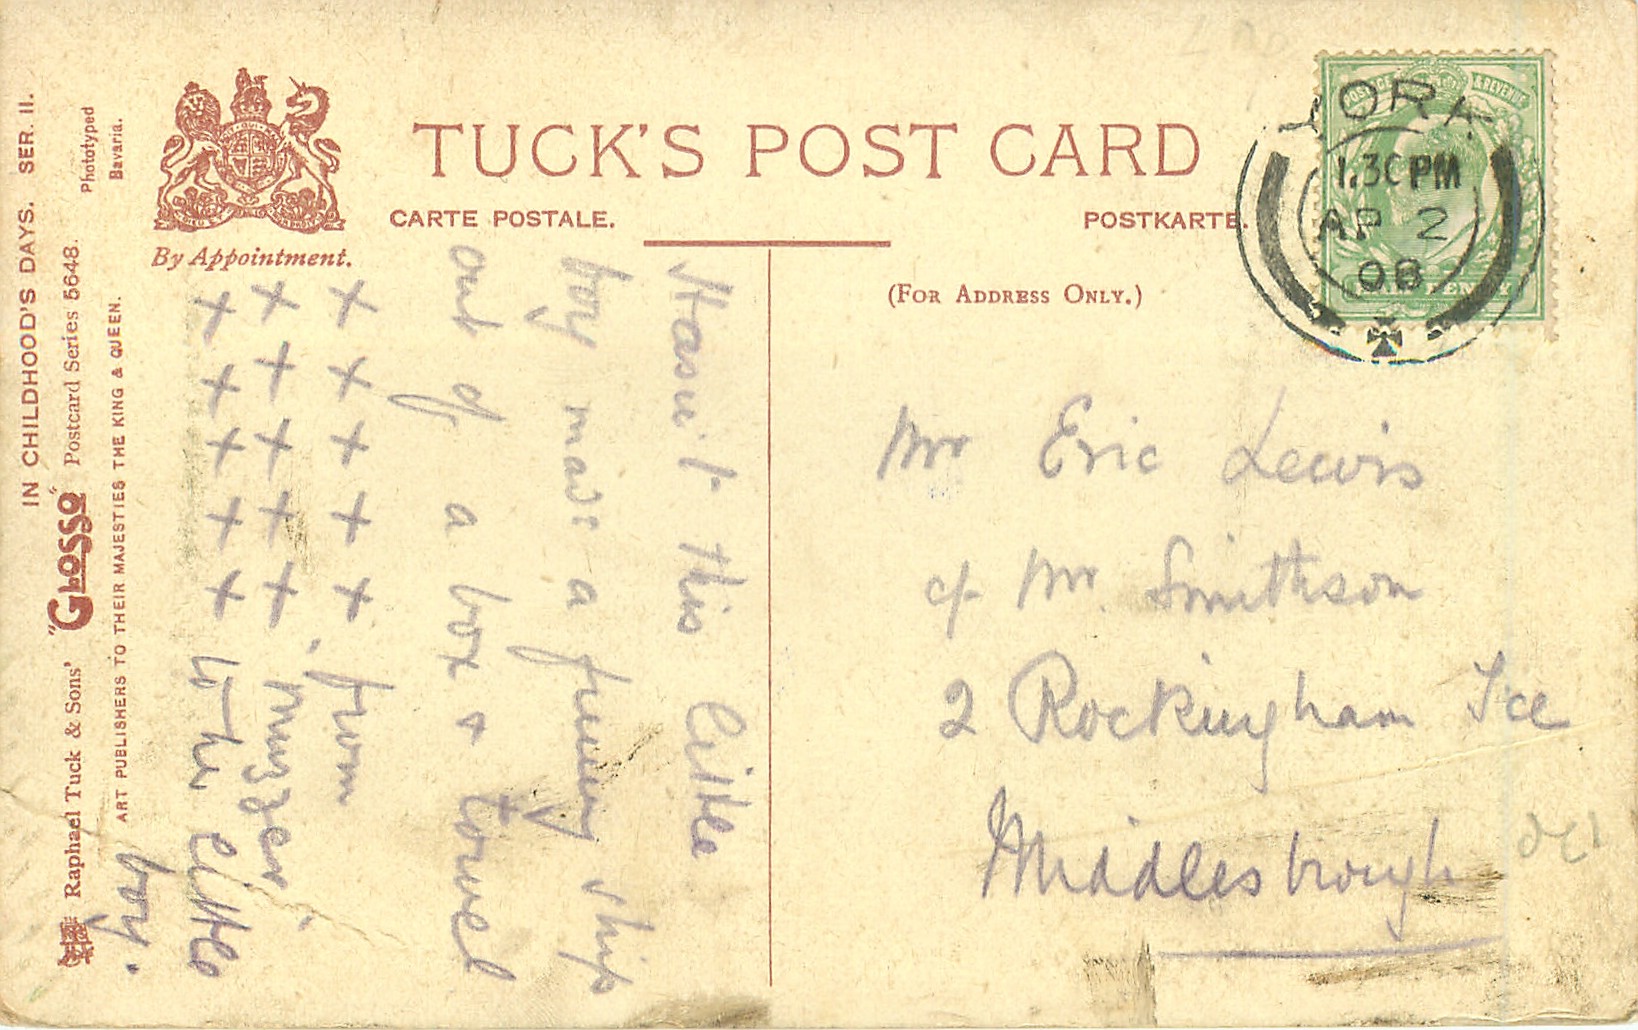 IN CHILDHOOD'S DAYS. SER. II.
Raphael Tuck & Sons' "GLOSSO" Postcard Series 5648.
Phototyped
Bavaria.
ART PUBLISHERS TO THEIR MAJESTIES THE KING & QUEEN.
By Appointment.
TUCK'S POST CARD
CARTE POSTALE.
POSTKARTE.
(FOR ADDRESS ONLY.)
POSTAGE & REVENUE
YORK
1.30PM
AP 2
08
Hasn't this little
boy made a funny ship
out of a box & towel
+ + + + + from
+ + + + +
+ + + + + to the little
boy.
Mr Eric Lewis
c/o Mr. Smithson
2 Rockingham Tce
Middlesbrough